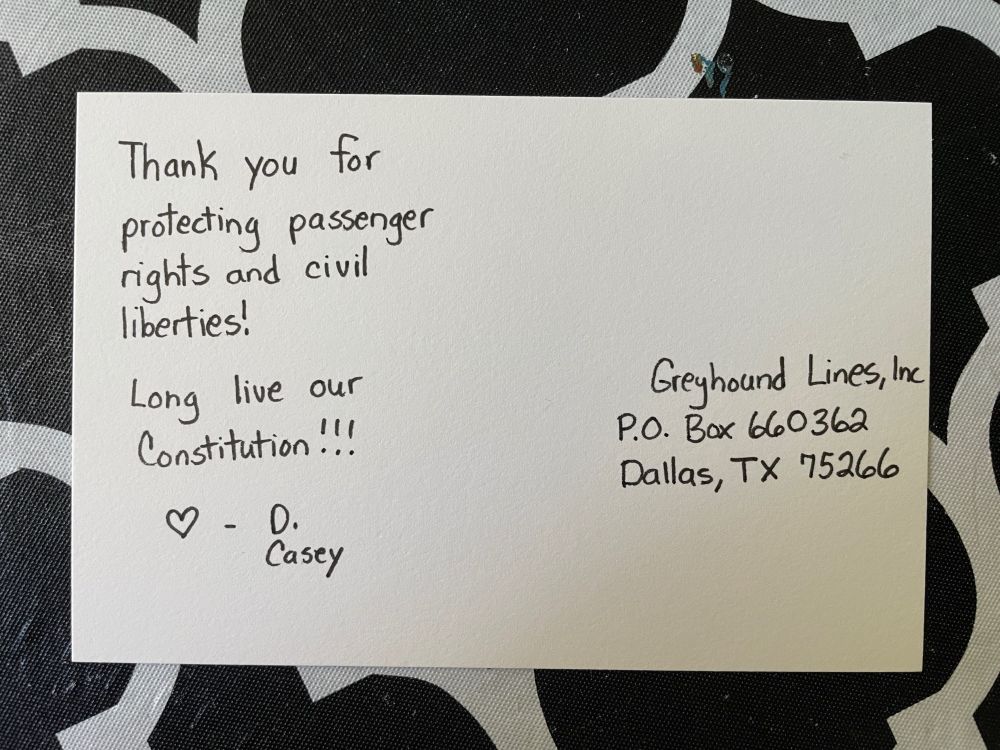 Thank you for
protecting passenger
rights and civil
liberties!
Long live our
Constitution!!!
♡ - D.
Casey
Greyhound Lines, Inc
P.O. Box 660362
Dallas, TX 75266